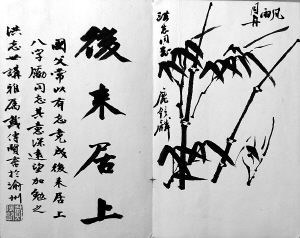 風雨
同舟
洪志同志
鹿鍾麟
後來居上
國父常以有志竟成後來居上
八字勵同志其意深遠望加勉之
洪志世講雅屬戴傳賢書於渝州